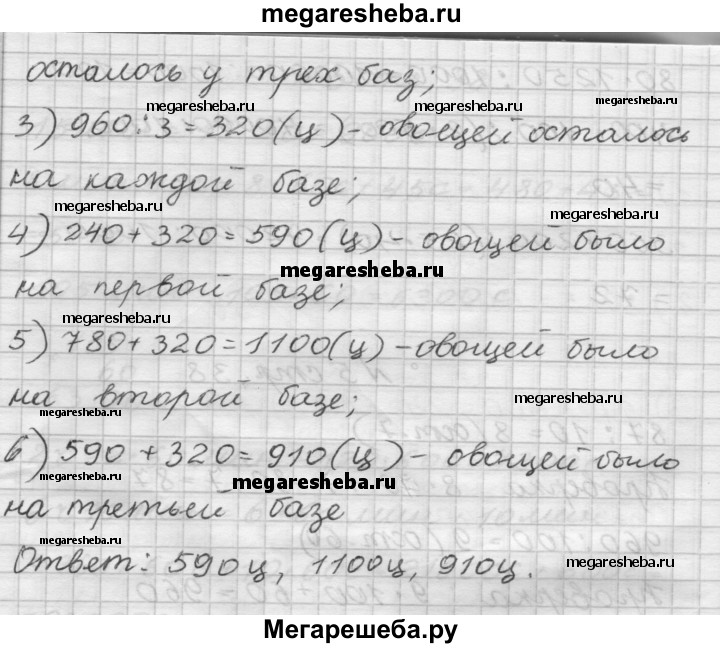 megaresheba.ru
осталось у трех баз;
megaresheba.ru megaresheba.ru megaresheba.ru
3) 960:3=320(ц)-овощей осталось
на каждой базе;
megaresheba.ru megaresheba.ru
4) 240+320=590(ц)-овощей было
megaresheba.ru
на первой базе;
megaresheba.ru
5) 780+320=1100(ц)-овощей было
на второй базе;
megaresheba.ru megaresheba.ru
6) 590+320=910(ц)-овощей было
megaresheba.ru
на третьей базе
megaresheba.ru megaresheba.ru
Ответ: 590ц, 1100ц, 910ц.
megaresheba.ru
Мегарешеба.ру